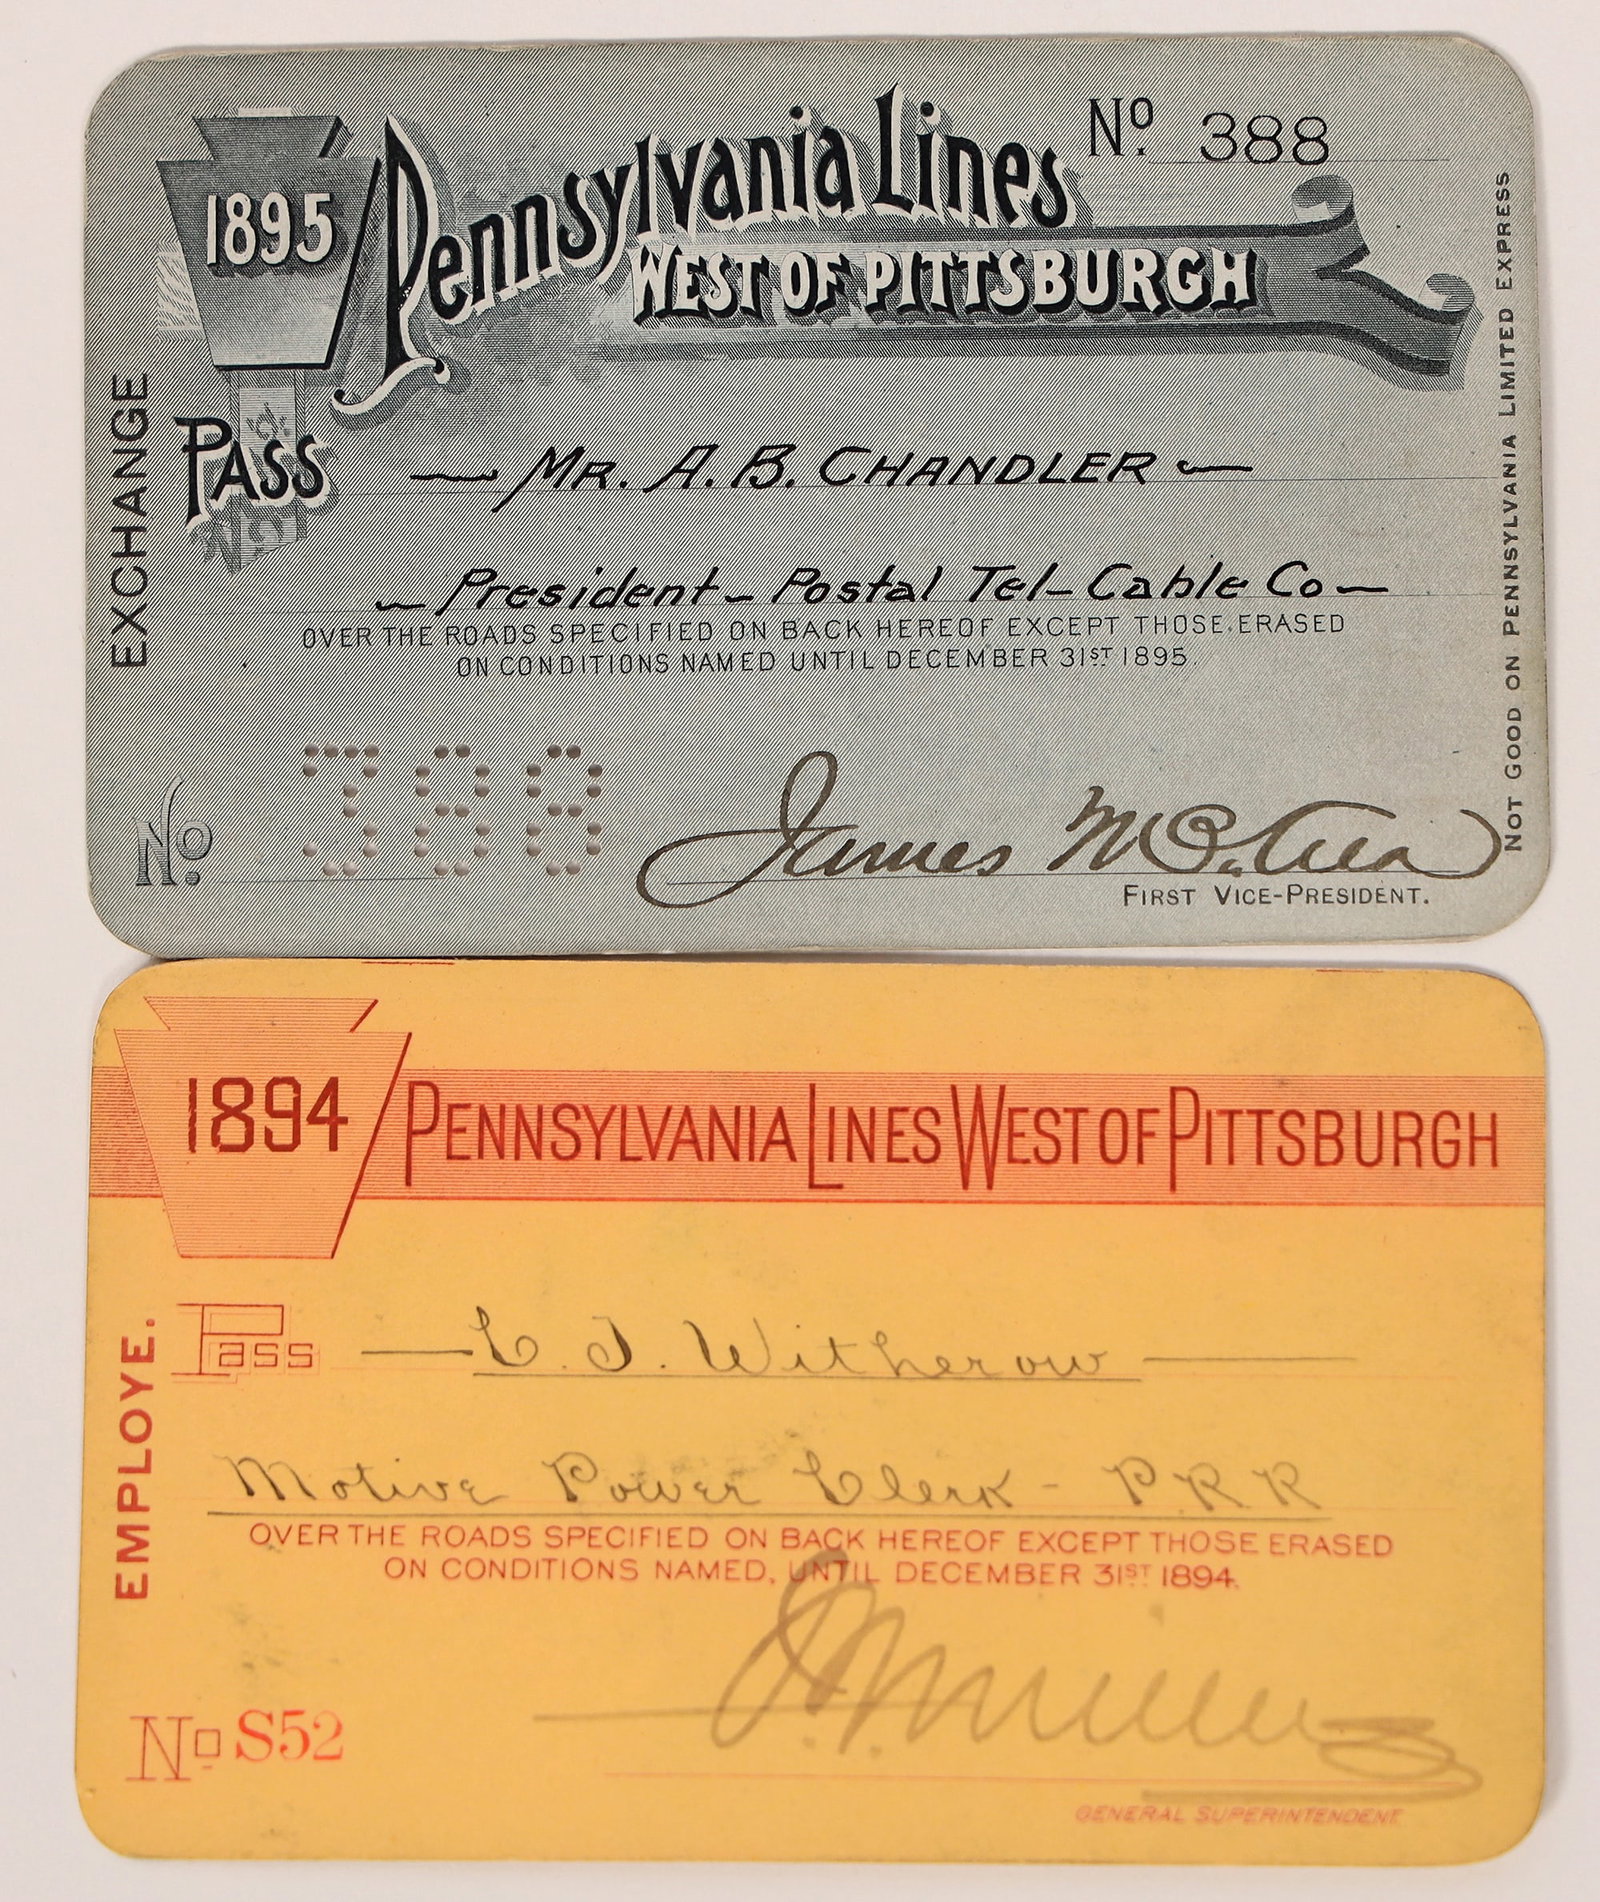 1895
Pennsylvania Lines
WEST OF PITTSBURGH
No. 388
EXCHANGE
PASS
MR. A. B. CHANDLER
President - Postal Tel - Cable Co
OVER THE ROADS SPECIFIED ON BACK HEREOF EXCEPT THOSE ERASED
ON CONDITIONS NAMED UNTIL DECEMBER 31ST 1895.
No. 388
James McCrea
FIRST VICE-PRESIDENT.
NOT GOOD ON PENNSYLVANIA LIMITED EXPRESS
1894
PENNSYLVANIA LINES WEST OF PITTSBURGH
EMPLOYE.
Pass
C. J. Witherow
Motive Power Clerk - P R R
OVER THE ROADS SPECIFIED ON BACK HEREOF EXCEPT THOSE ERASED
ON CONDITIONS NAMED, UNTIL DECEMBER 31ST 1894.
No S52
GENERAL SUPERINTENDENT